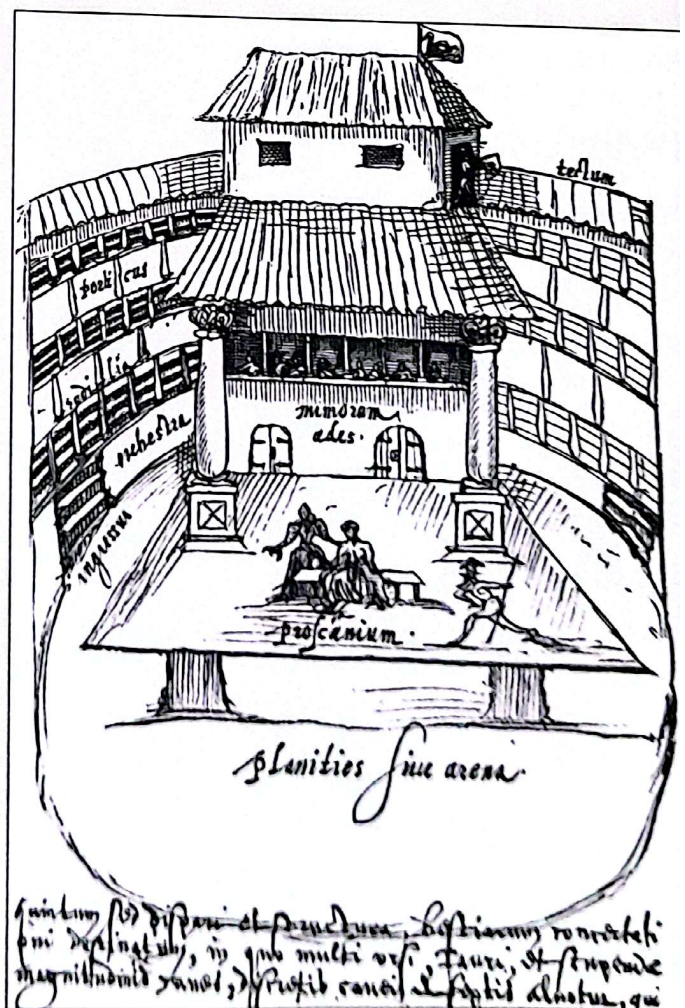 tectum
porticus
sedilia
orchestra
mimorum
ædes.
ingressus
proscænium.
planities sive arena.
quintum sed dispari et structura, bestiarum concertati
oni destinatum, in quo multi ursi, Tauri, et stupendæ
magnitudinis canes, discretis caueis et septis aluntur, qui